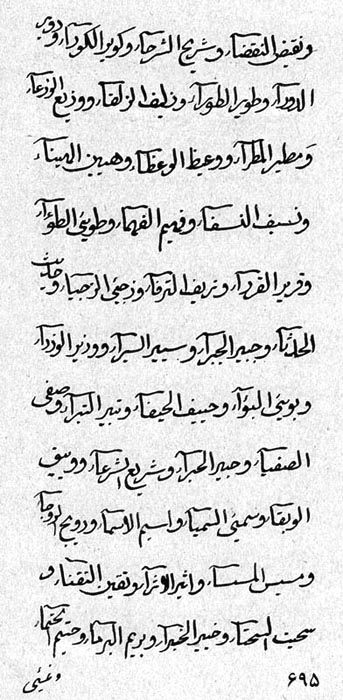 ونقيض النقضاء وشريح الشرحاء وكوير الكوراء ودوير
الدوراء وطوير الطوراء وزليف الزلفاء ووزيع الوزعاء
ومطير المطراء ووعيظ الوعظاء وهيين الهيناء
ونسيف النسفاء وفهيم الفهماء وطوئي الطوآء
وقرير القرراء وتريف الترفاء ورجئي الرجياء وحديث
الحدثاء وجبير الجبراء وسيير السيراء ووزير الوزراء
وبوئي البوآء وحنيف الحنفاء وتبير التبراء وصفي
الصفياء وحبير الحبراء وشريع الشرعاء ووبيق
الوبقاء وسمئي السمياء واسيم الاسماء ورويح الروحاء
ومسيس المسساء واثير الاثراء وتقين التقناء و
سحيت السحتاء وخبير الخبراء وبريم البرماء وختيم الختماء
۶۹۵